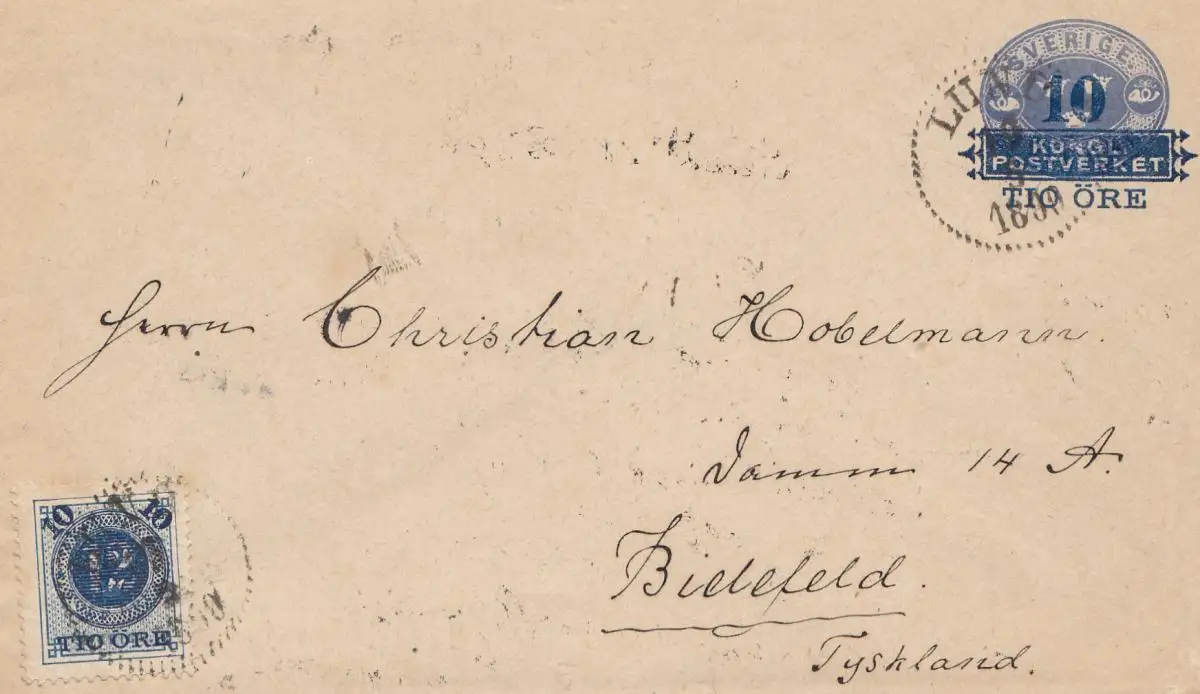 SVERIGE
10
KONGL.
POSTVERKET
TIO ÖRE
1890
Herrn Christian Hobelmann.
Damm 14 A.
Bielefeld.
Tyskland.
10 10
12
TIO ÖRE
1890